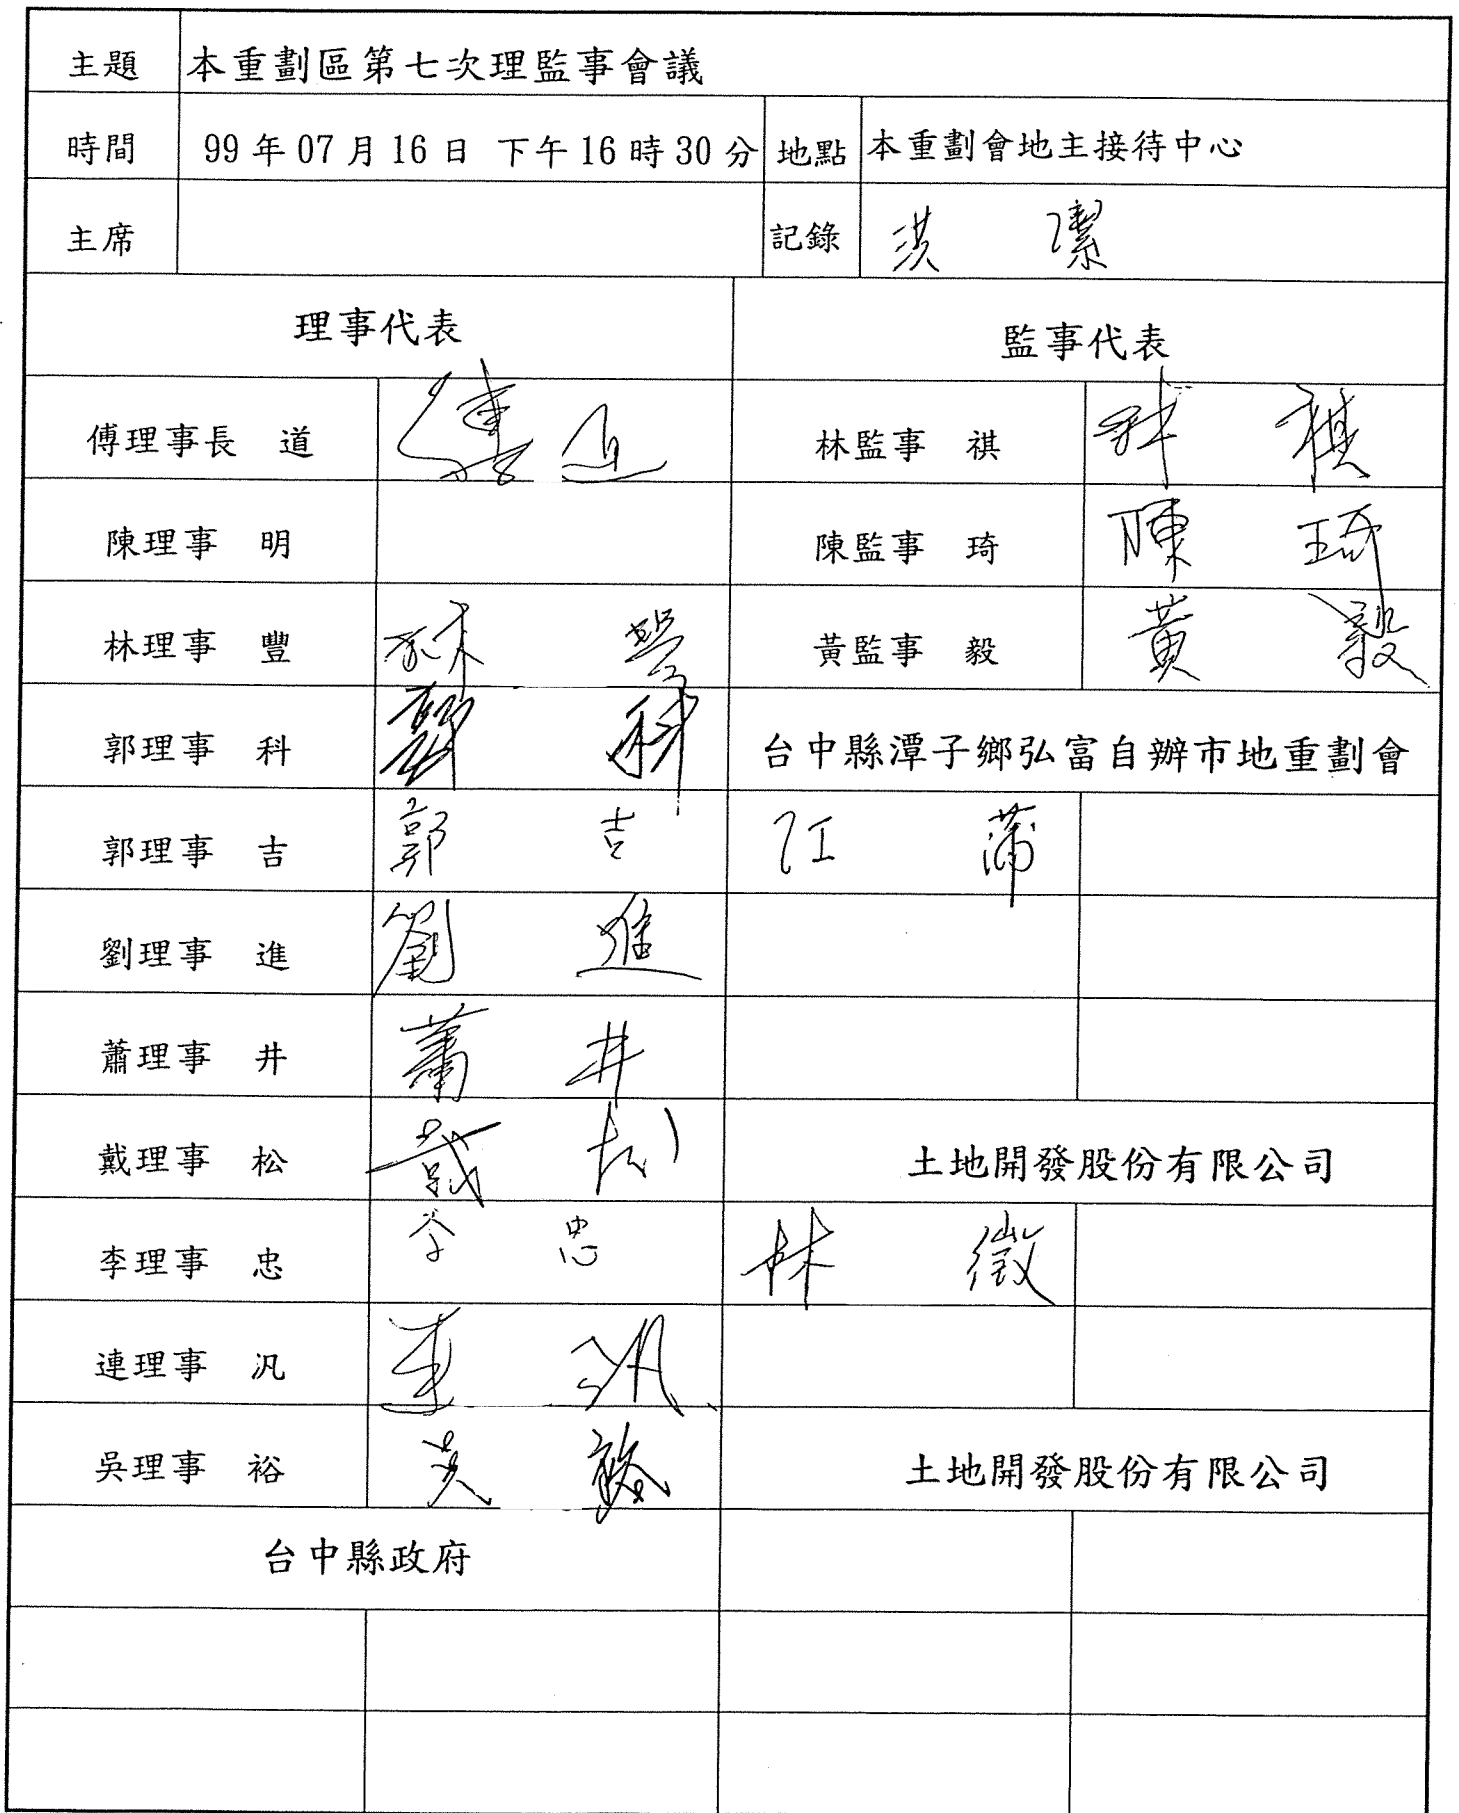 主題 本重劃區第七次理監事會議
時間 99年07月16日 下午16時30分 地點 本重劃會地主接待中心
主席 記錄 洪 潔
理事代表 監事代表
傅理事長 道 傅 道 林監事 祺 林 祺
陳理事 明 陳監事 琦 陳 琦
林理事 豐 林 豐 黃監事 毅 黃 毅
郭理事 科 郭 科 台中縣潭子鄉弘富自辦市地重劃會
郭理事 吉 郭 吉 江 蒲
劉理事 進 劉 進
蕭理事 井 蕭 井
戴理事 松 戴 松 土地開發股份有限公司
李理事 忠 李 忠 林 徵
連理事 汎 連 汎
吳理事 裕 吳 裕 土地開發股份有限公司
台中縣政府